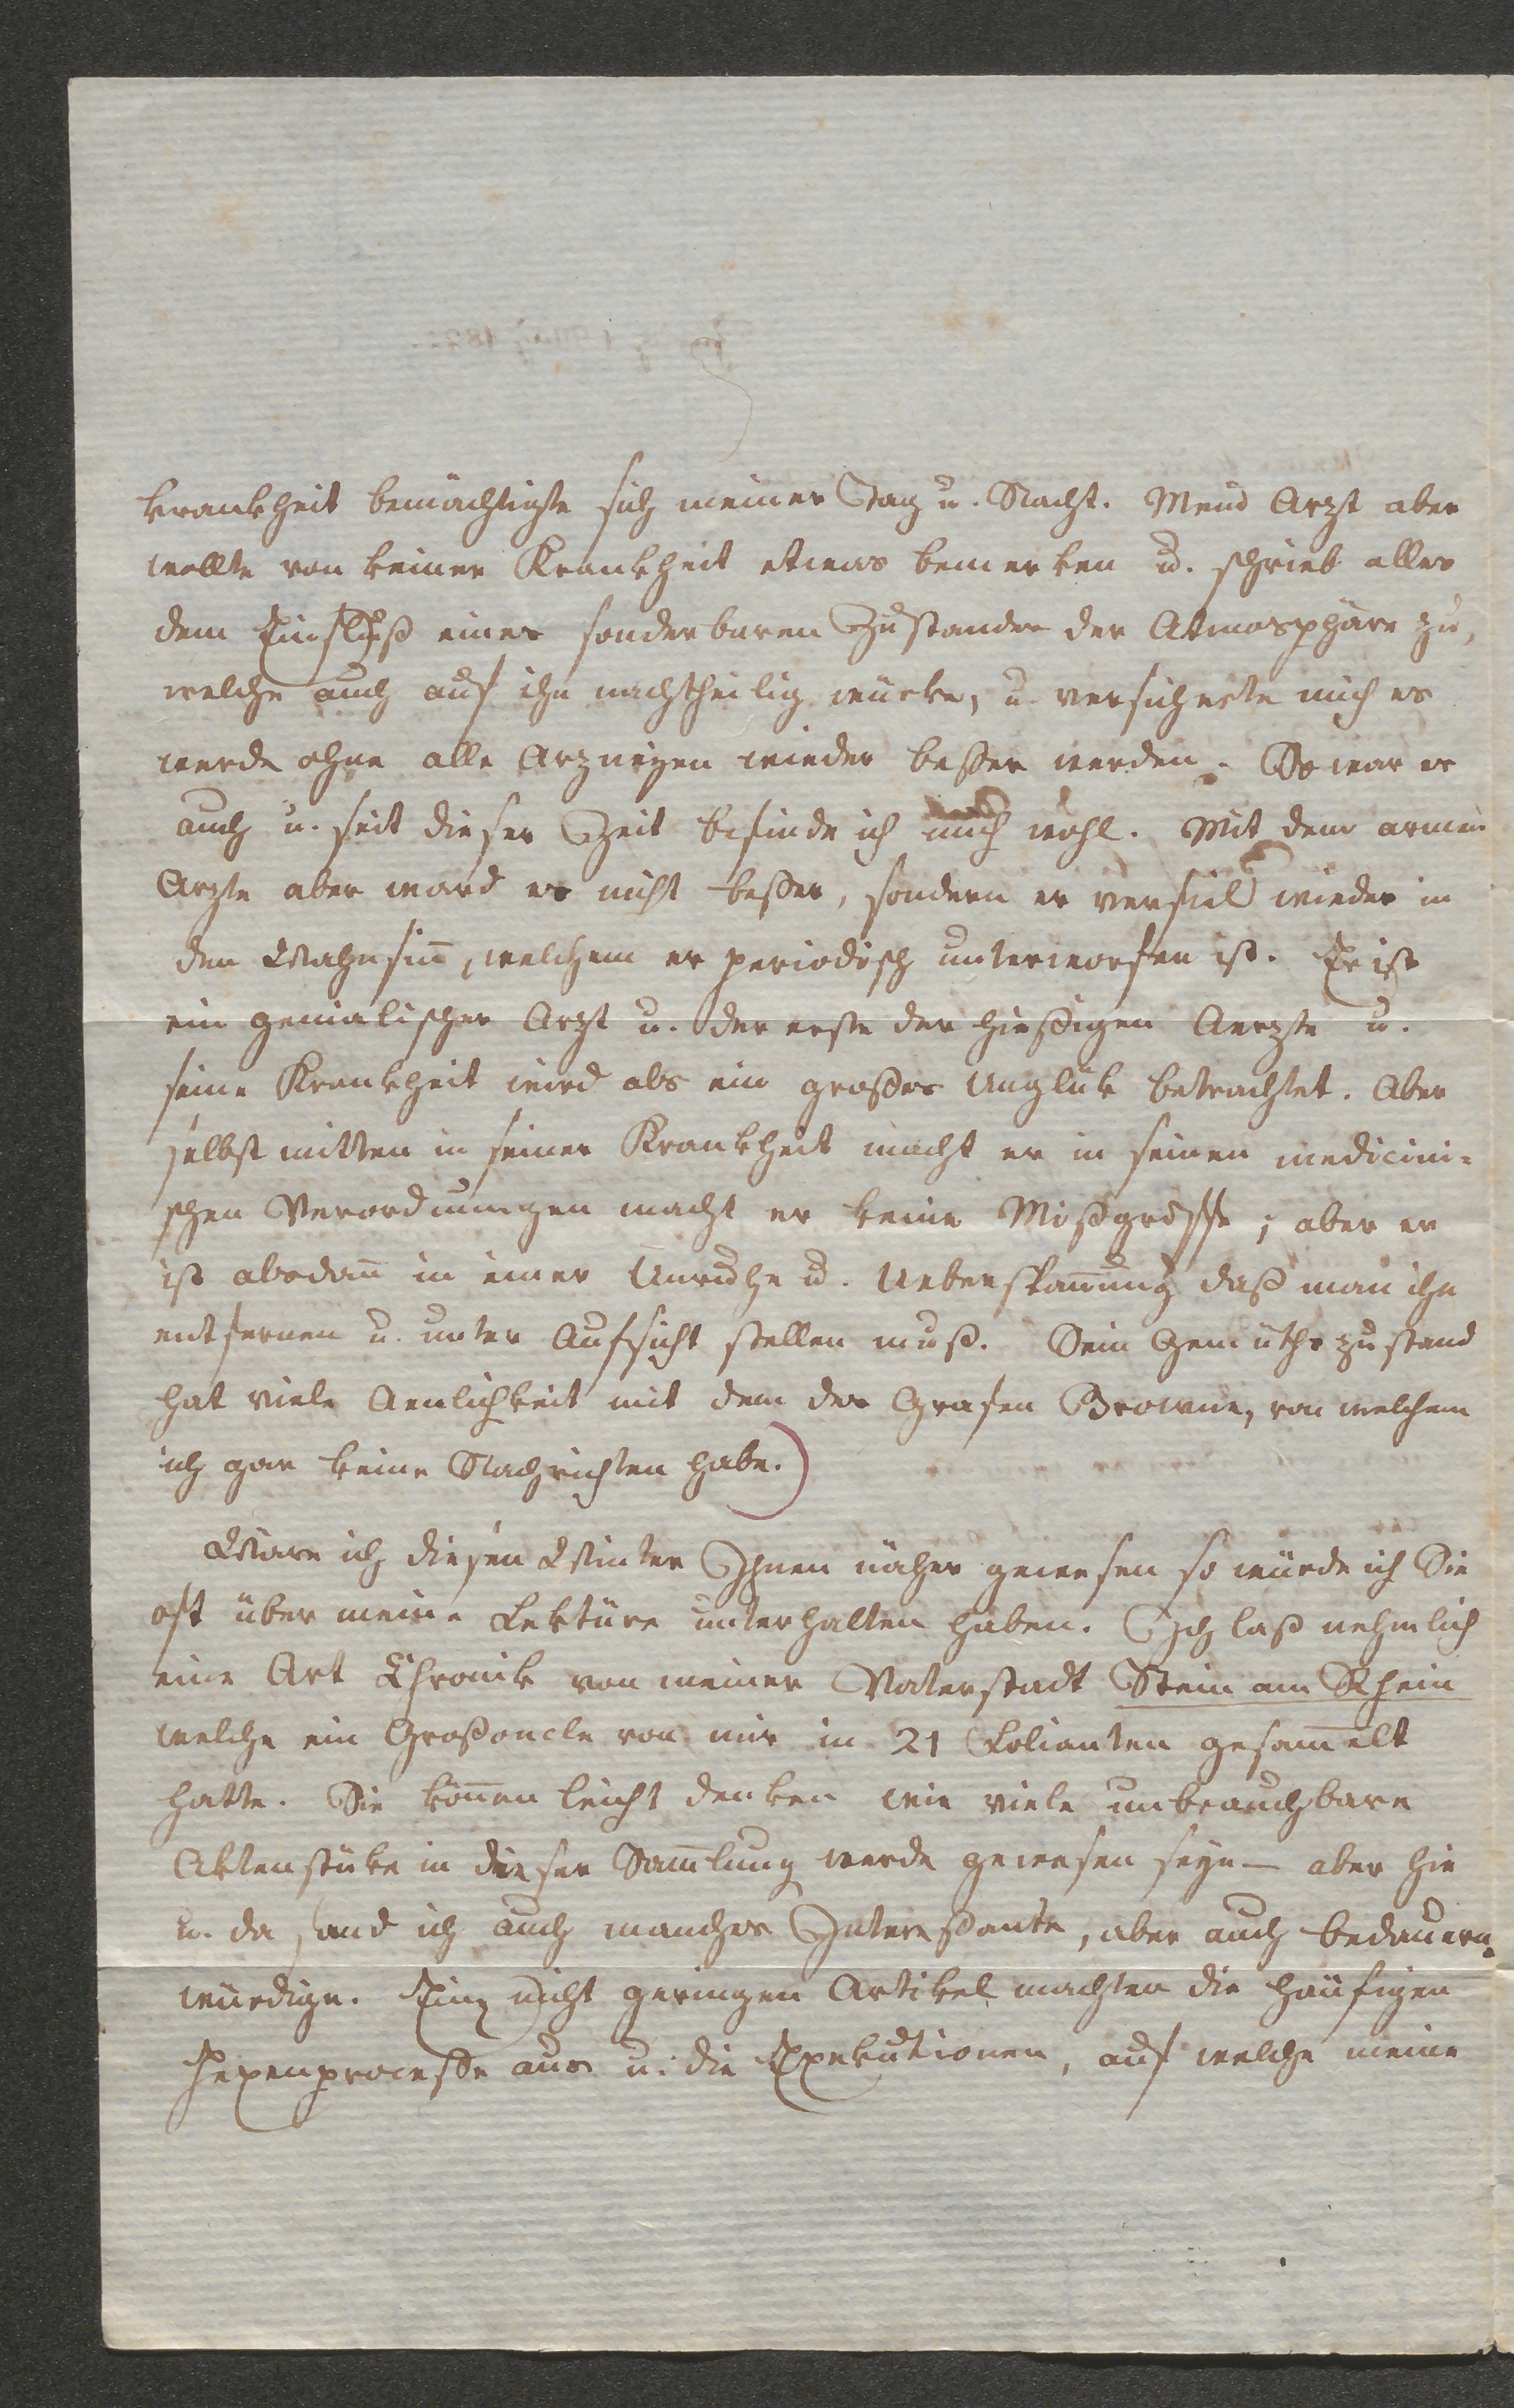 krankheit bemächtigte sich meiner Tag u. Nacht. Mein Arzt aber
wollte von keiner Krankheit etwas bemerken u. schrieb alles
dem Einfluß eines sonderbaren Zustandes der Atmosphäre zu,
welche auch auf ihn nachtheilig würke, u. versicherte mich es
werde ohne alle Arzneyen wieder besser werden. So war es
auch u. seit dieser Zeit befinde ich mich wohl. Mit dem armen
Arzte aber ward es nicht besser, sondern er verfiel wieder in
den Wahnsiñ, welchem er periodisch unterworfen ist. Er ist
ein genialischer Arzt u. der erste der hiesigen Aerzte u.
seine Krankheit wird als ein großes Unglük betrachtet. Aber
selbst mitten in seiner Krankheit macht er in seinen medicini-
schen Verordnungen macht er keine Mißgriffe; aber er
ist alsdañ in einer Unruhe u. Ueberspañung daß man ihn
entfernen u. unter Aufsicht stellen muß. Sein Gemüthszustand
hat viele Aenlichkeit mit dem des Grafen Browne, von welchem
ich gar keine Nachrichten habe.)
Wäre ich diesen Winter Ihnen näher gewesen so würde ich Sie
oft über meine Lektüre unterhalten haben. Ich laß nehmlich
eine Art Chronik von meiner Vaterstadt Stein am Rhein
welche ein Großoncle von mir in 21 Folianten gesam̃elt
hatte. Sie köñen leicht denken wie viele unbrauchbare
Aktenstüke in dieser Sam̃lung werde gewesen seyn — aber hie
u. da fand ich auch manches Interessante, aber auch bedauern-
würdige. Einen nicht geringen Artikel machten die häufigen
Hexenprocesse aus u. die Exekutionen, auf welche meine